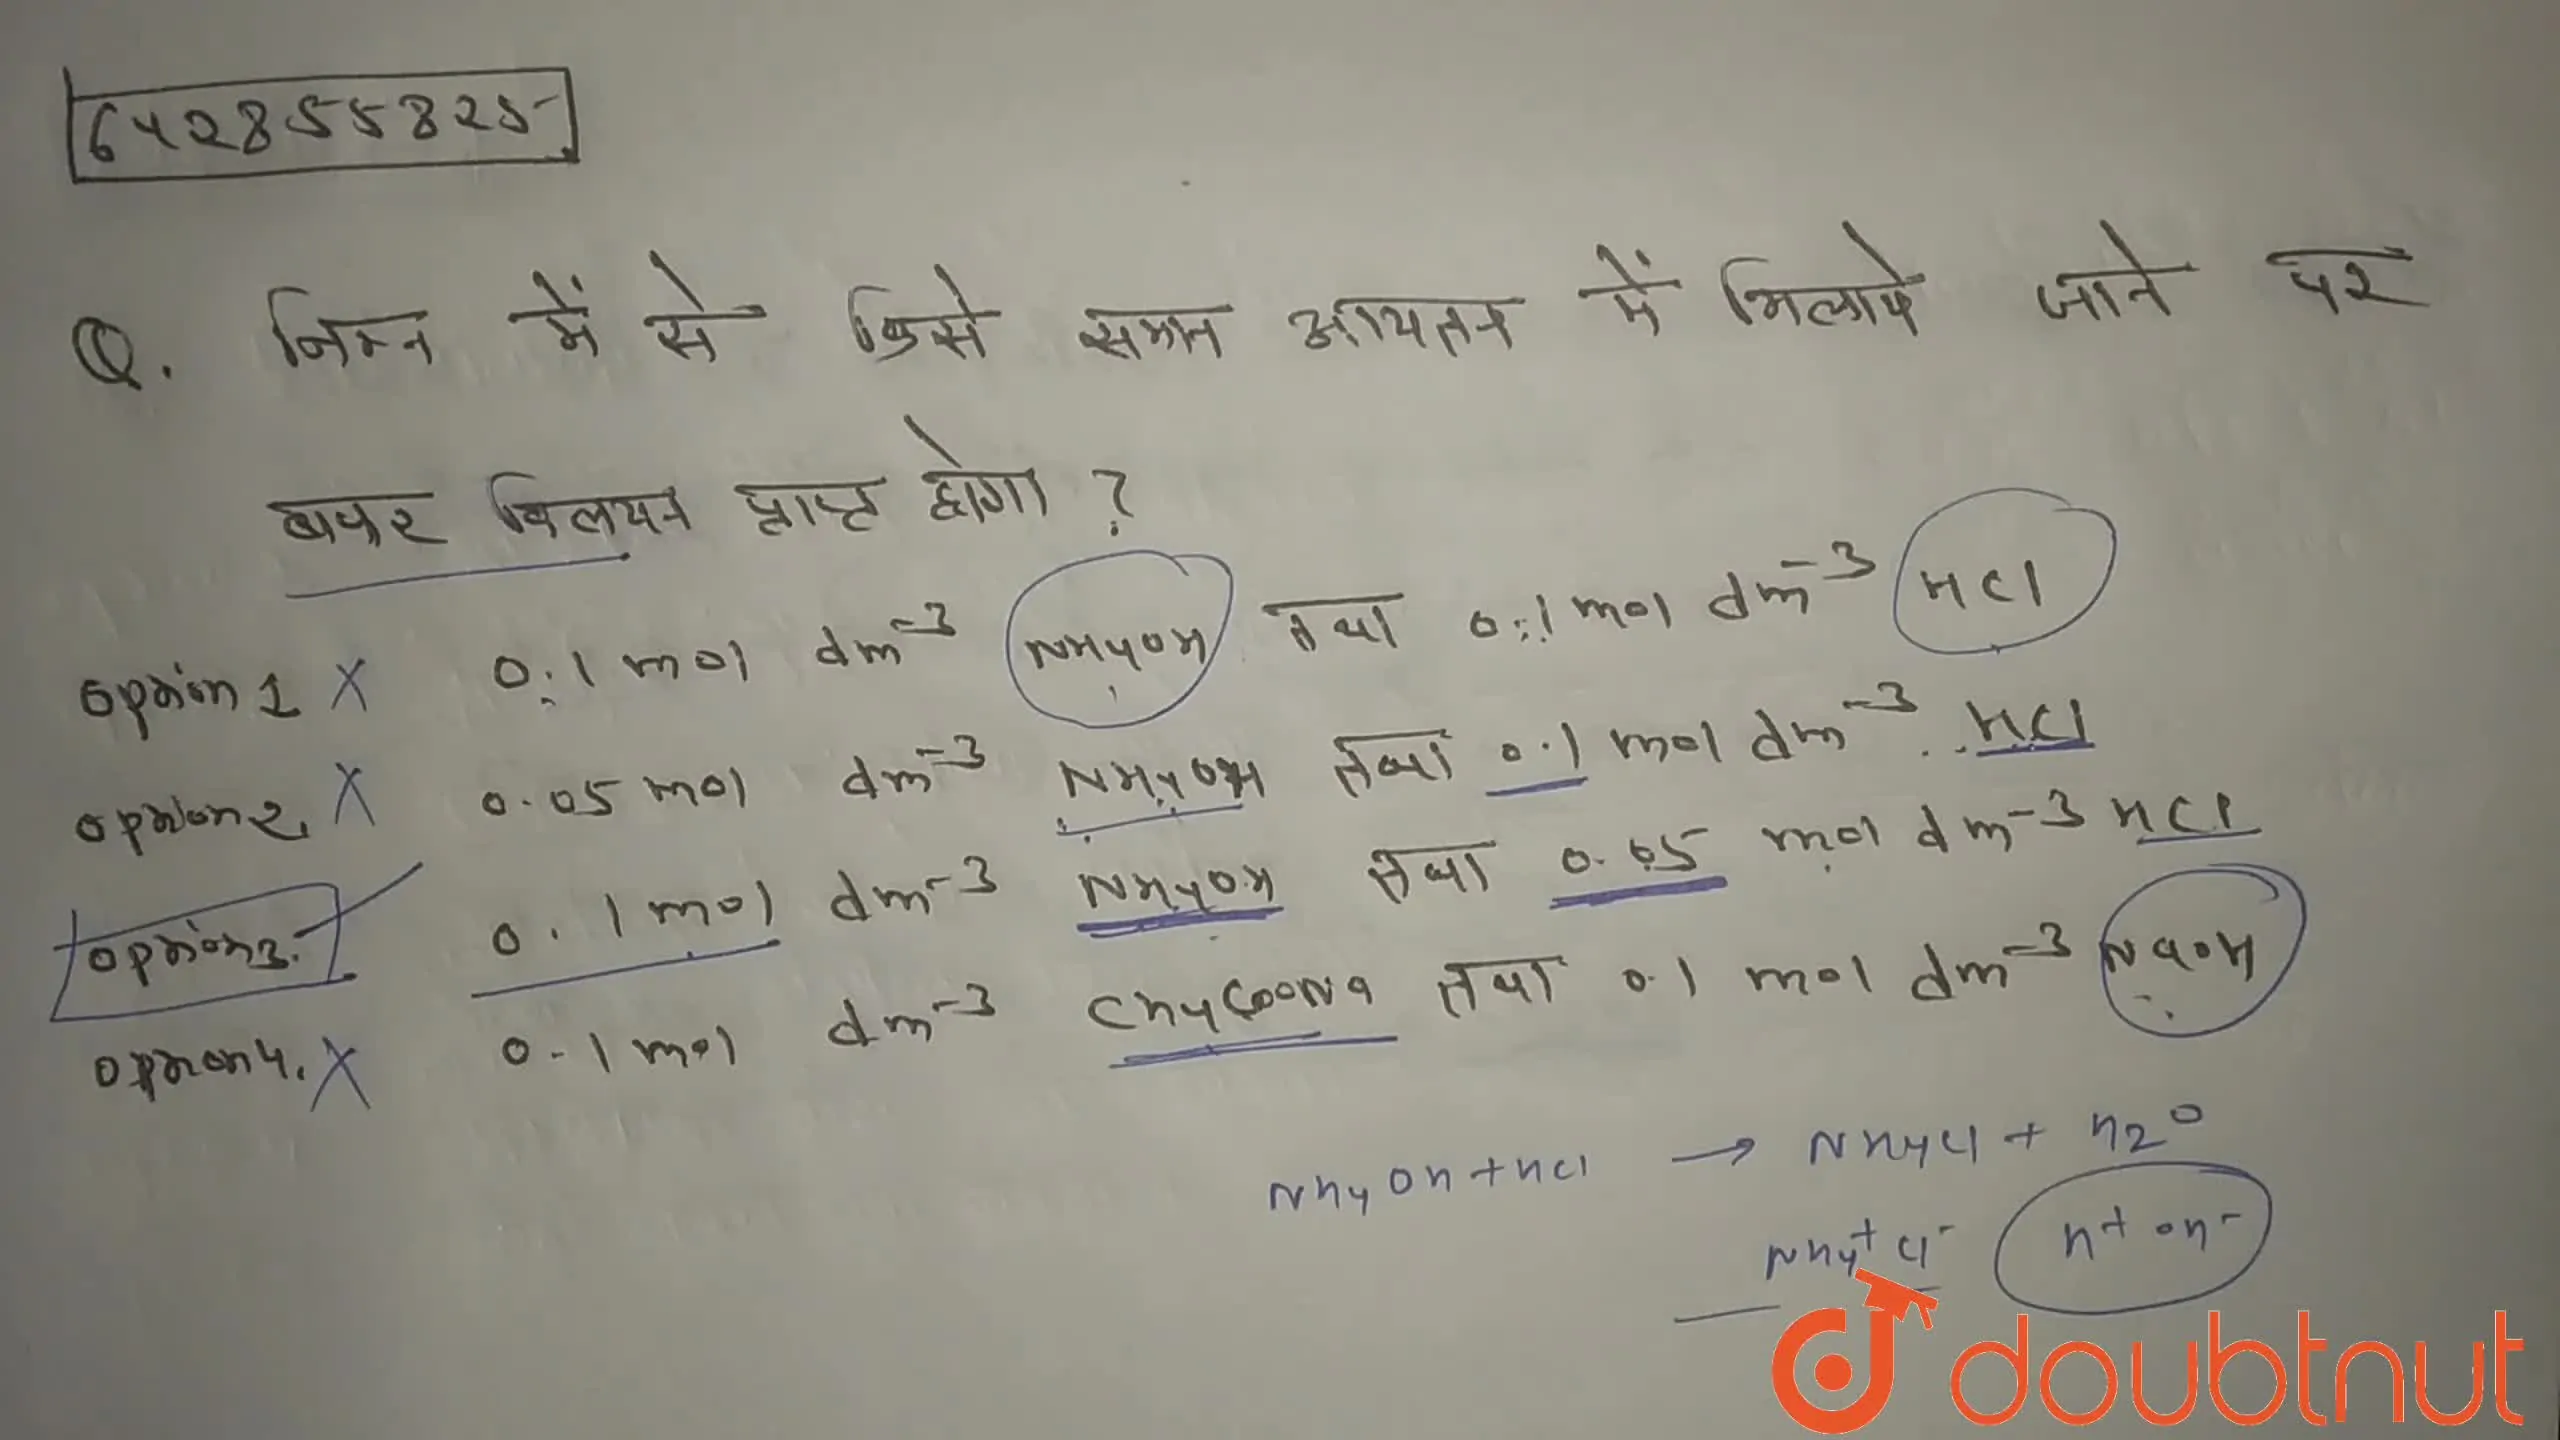 642855825
Q. निम्न में से किसे समान आयतन में मिलाये जाने पर
बफर विलयन प्राप्त होगा ?
option 1 X 0.1 mol dm⁻³ NH4OH तथा 0.1 mol dm⁻³ HCl
option 2. X 0.05 mol dm⁻³ NH4OH तथा 0.1 mol dm⁻³ HCl
option 3. 0.1 mol dm⁻³ NH4OH तथा 0.05 mol dm⁻³ HCl
option 4. X 0.1 mol dm⁻³ CH4COONa तथा 0.1 mol dm⁻³ NaOH
NH4OH + HCl → NH4Cl + H2O
NH4⁺ Cl⁻ H⁺ OH⁻
doubtnut